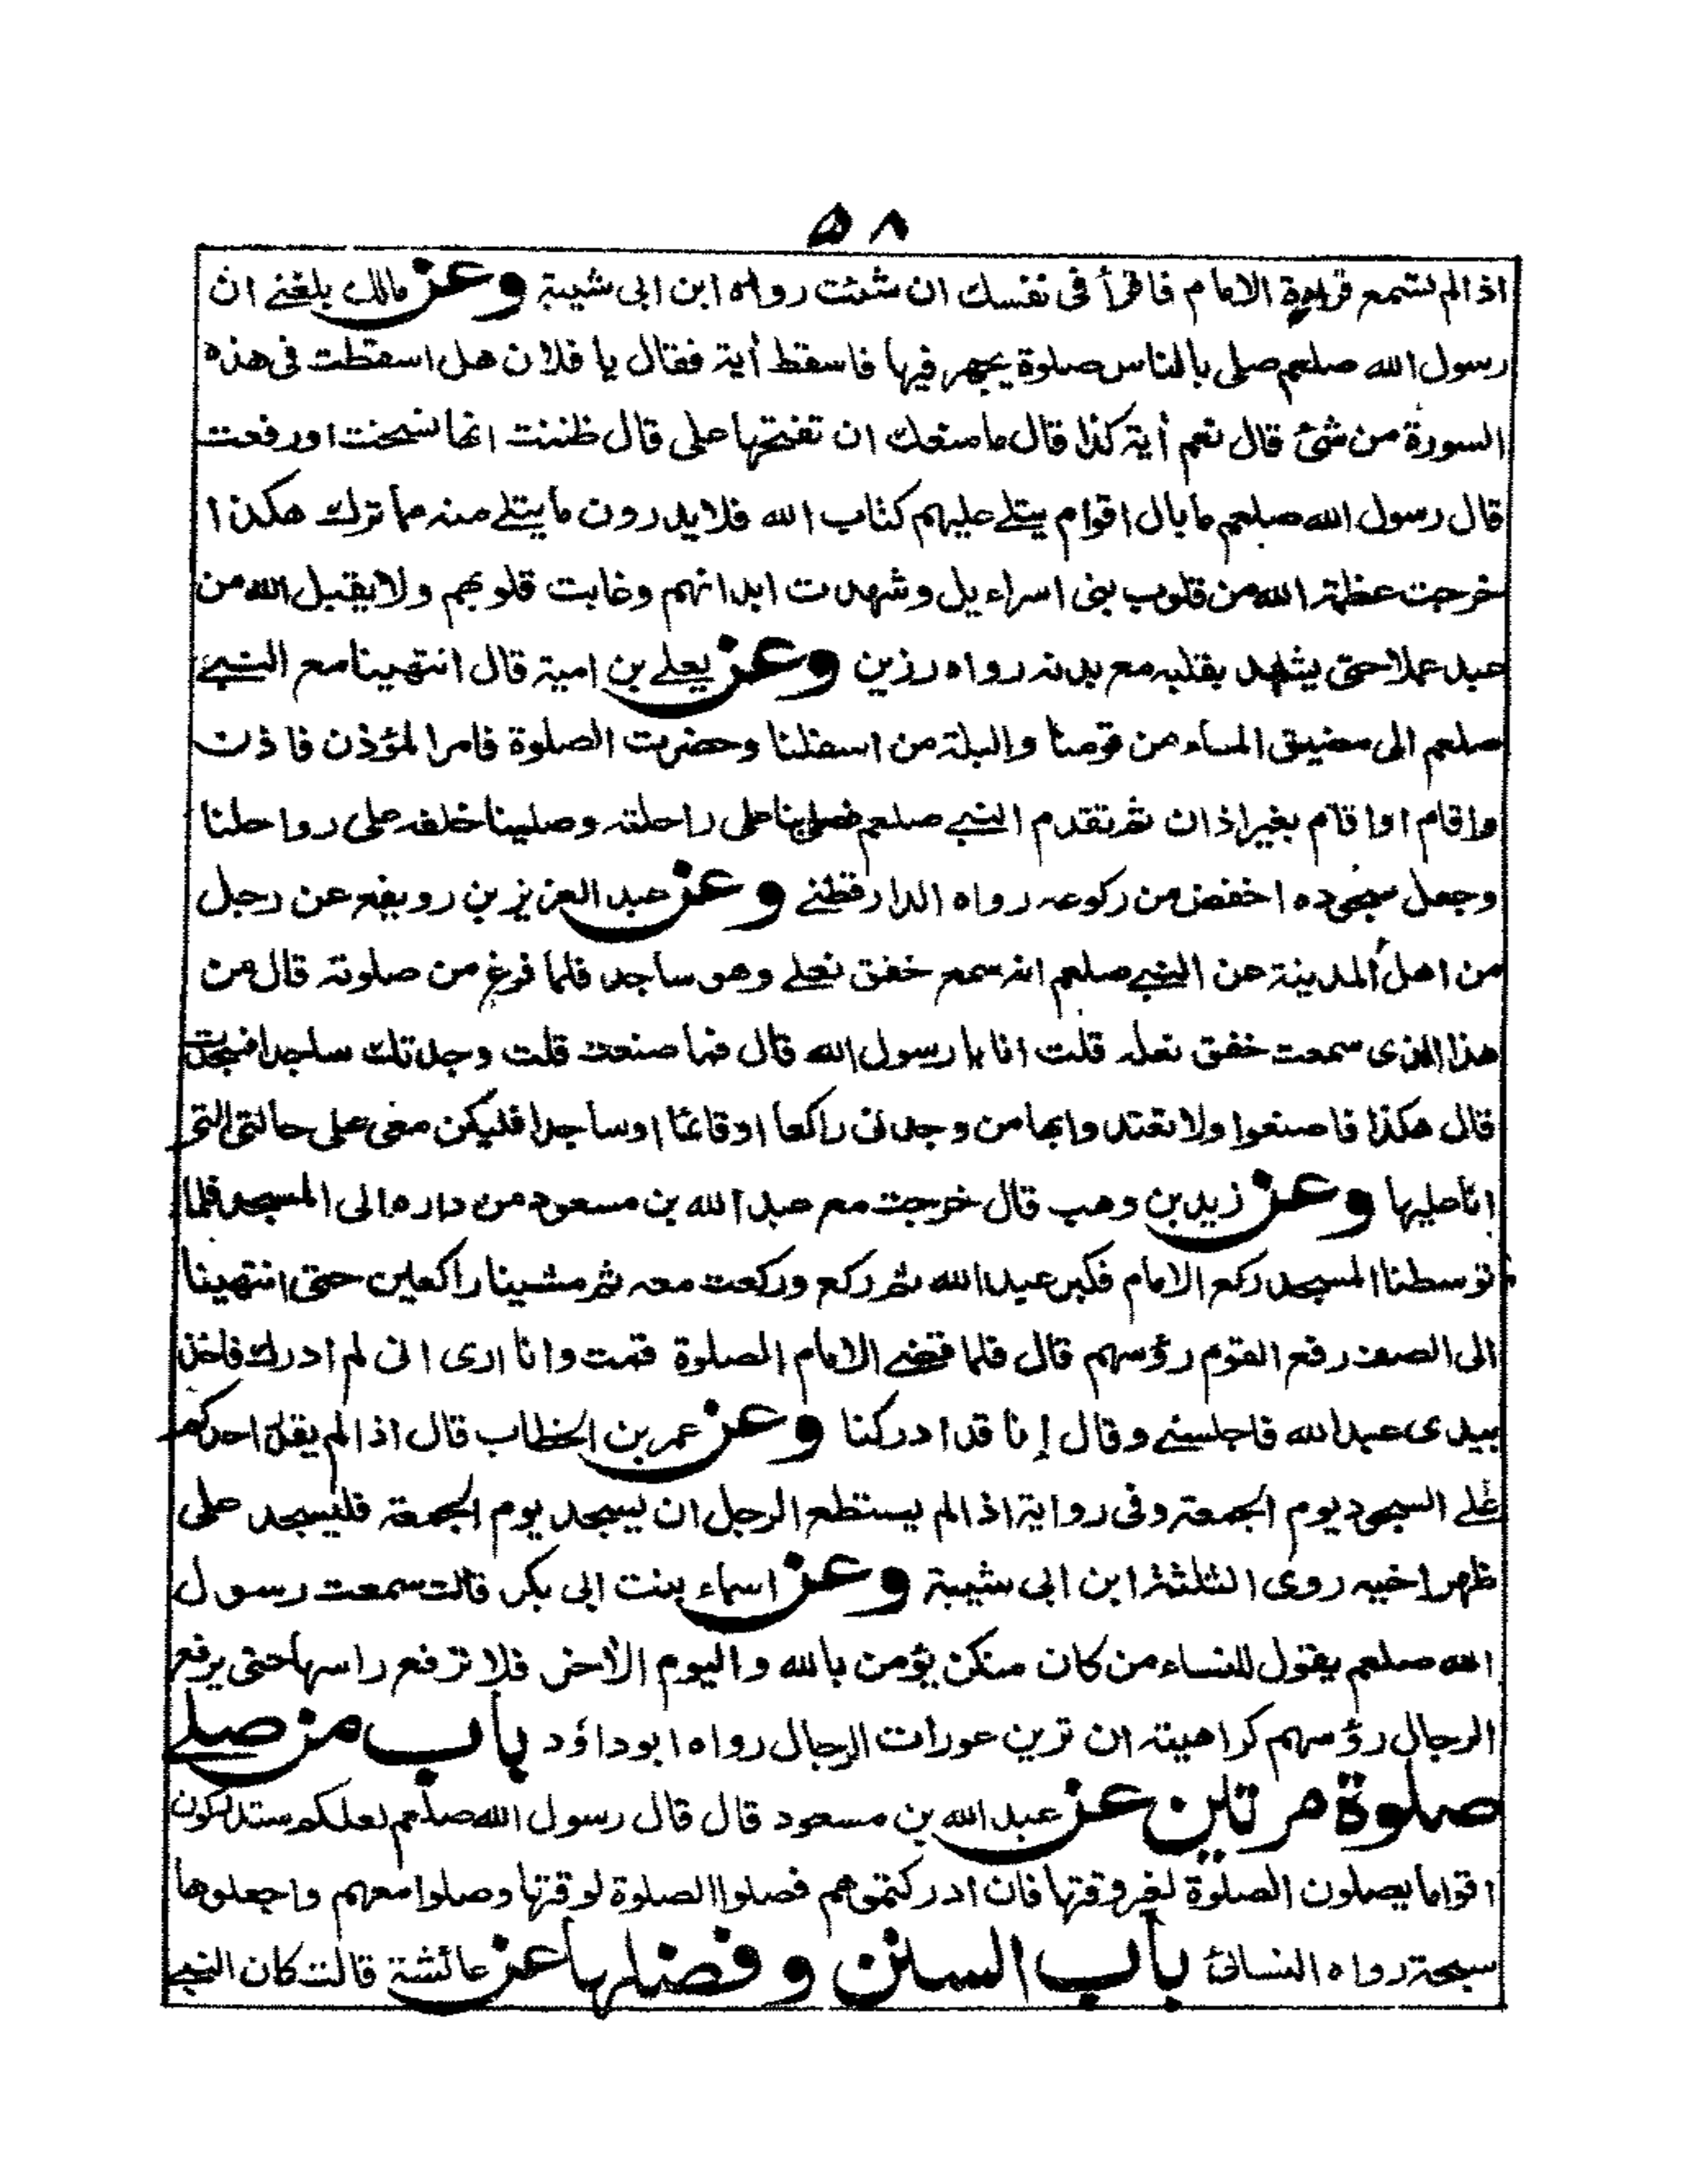 ۵۸
اذا لم تسمع قراءة الامام فاقرأ فى نفسك ان شئت رواه ابن ابى شيبة وعن مالك بلغنے ان
رسول الله صلعم صلى بالناس صلوة يجهر فيها فاسقط أية فقال يا فلان هل اسقطت فى هذه
السورة من شئ قال نعم أية كذا قال ما منعك ان تفتحها على قال ظننت انها نسخت او رفعت
قال رسول الله صلعم ما بال اقوام يتلے عليهم كتاب الله فلا يدرون ما يتلے منه مما ترك هكذا
خرجت عظمة الله من قلوب بنى اسراءيل وشهدت ابدانهم وغابت قلوبهم ولا يقبل الله من
عبد عملا حتى يشهد بقلبه مع بدنه رواه رزين وعن يعلے بن امية قال انتهينا مع النبے
صلعم الى مضيق السماء من فوقنا والبلة من اسفلنا وحضرت الصلوة فامر المؤذن فاذن
واقام او اقام بغير اذان ثم تقدم النبے صلعم فصلى بنا على راحلته وصلينا خلفه على رواحلنا
وجعل سجوده اخفض من ركوعه رواه الدارقطنے وعن عبد العزيز بن رويفع عن رجل
من اهل المدينة عن النبے صلعم انه سمع خفق نعلے وهو ساجد فلما فرغ من صلوته قال من
هذا الذى سمعت خفق نعله قلت انا يا رسول الله قال فما صنعت قلت وجدتك ساجدا فسجدت
قال هكذا فاصنعوا ولا تعتد وابها من وجدنى راكعا او قائما او ساجدا فليكن معى على حالتى التى
انا عليها وعن زيد بن وهب قال خرجت مع عبد الله بن مسعود من داره الى المسجد فلما
توسطنا المسجد ركع الامام فكبر عبد الله ثم ركع وركعت معه ثم مشينا راكعين حتى انتهينا
الى الصف رفع القوم رؤسهم قال فلما قضے الامام الصلوة قمت وانا ارى انى لم ادرك فاخذ
بيدى عبد الله فاجلسنے وقال إنا قد ادركنا وعن عمر بن الخطاب قال اذا لم يقدر احدكم
علے السجود يوم الجمعة وفى رواية اذا لم يستطع الرجل ان يسجد يوم الجمعة فليسجد على
ظهر اخيه روى الثلثة ابن ابى شيبة وعن اسماء بنت ابى بكر قالت سمعت رسول
الله صلعم يقول للنساء من كان منكن يؤمن بالله واليوم الأخر فلا ترفع راسها حتى يرفع
الرجال رؤسهم كراهية ان ترين عورات الرجال رواه ابوداؤد باب من صلے
صلوة مرتين عن عبد الله بن مسعود قال قال رسول الله صلعم لعلكم ستدركون
اقواما يصلون الصلوة لغير وقتها فان ادركتموهم فصلوا الصلوة لوقتها وصلوا معهم واجعلوها
سبحة رواه النسائ باب السنن وفضلها عن عائشة قالت كان النبے